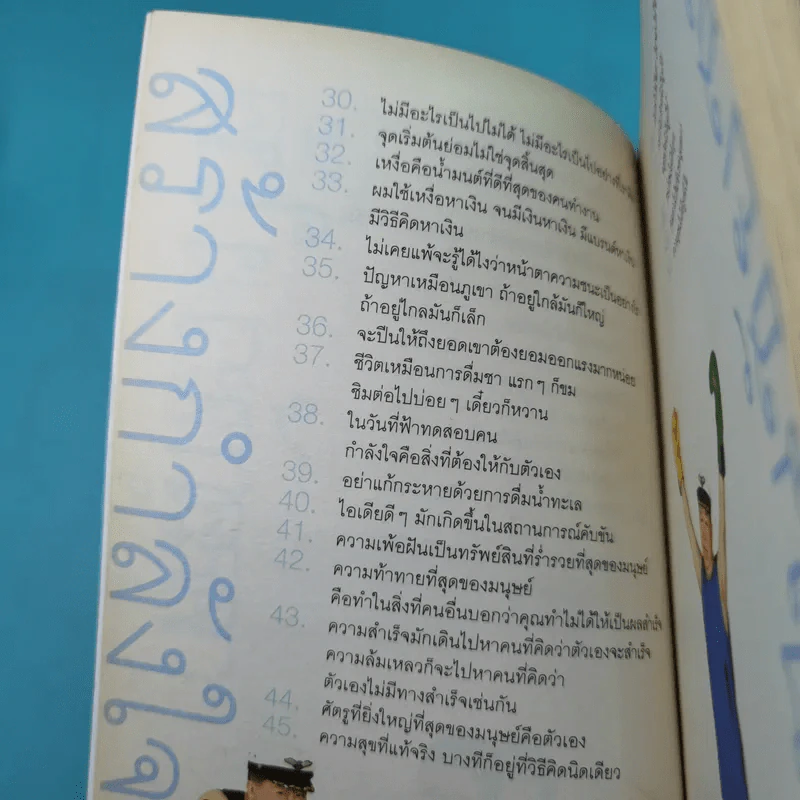 สร้างกำลังใจ
30. ไม่มีอะไรเป็นไปไม่ได้ ไม่มีอะไรเป็นไปอย่างที่
31. จุดเริ่มต้นย่อมไม่ใช่จุดสิ้นสุด
32. เหงื่อคือน้ำมนต์ที่ดีที่สุดของคนทำงาน
33. ผมใช้เหงื่อหาเงิน จนมีเงินหาเงิน มีแบรนด์หาเงิน
มีวิธีคิดหาเงิน
34. ไม่เคยแพ้จะรู้ได้ไงว่าหน้าตาความชนะเป็นอย่างไร
35. ปัญหาเหมือนภูเขา ถ้าอยู่ใกล้มันก็ใหญ่
ถ้าอยู่ไกลมันก็เล็ก
36. จะปีนให้ถึงยอดเขาต้องยอมออกแรงมากหน่อย
37. ชีวิตเหมือนการดื่มชา แรกๆ ก็ขม
ชิมต่อไปบ่อยๆ เดี๋ยวก็หวาน
38. ในวันที่ฟ้าทดสอบคน
กำลังใจคือสิ่งที่ต้องให้กับตัวเอง
39. อย่าแก้กระหายด้วยการดื่มน้ำทะเล
40. ไอเดียดีๆ มักเกิดขึ้นในสถานการณ์คับขัน
41. ความเพ้อฝันเป็นทรัพย์สินที่ร่ำรวยที่สุดของมนุษย์
42. ความท้าทายที่สุดของมนุษย์
คือทำในสิ่งที่คนอื่นบอกว่าคุณทำไม่ได้ให้เป็นผลสำเร็จ
43. ความสำเร็จมักเดินไปหาคนที่คิดว่าตัวเองจะสำเร็จ
ความล้มเหลวก็จะไปหาคนที่คิดว่า
ตัวเองไม่มีทางสำเร็จเช่นกัน
44. ศัตรูที่ยิ่งใหญ่ที่สุดของมนุษย์คือตัวเอง
45. ความสุขที่แท้จริง บางทีก็อยู่ที่วิธีคิดนิดเดียว